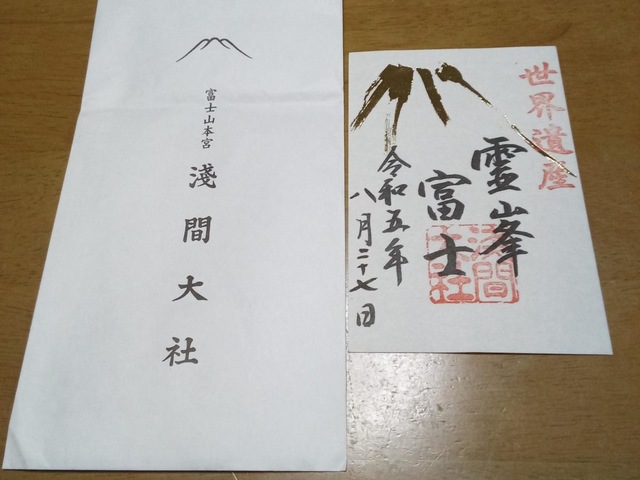 富士山本宮
淺間大社
世界遺産
霊峯
富士
令和五年
八月二十七日
淺間
大社